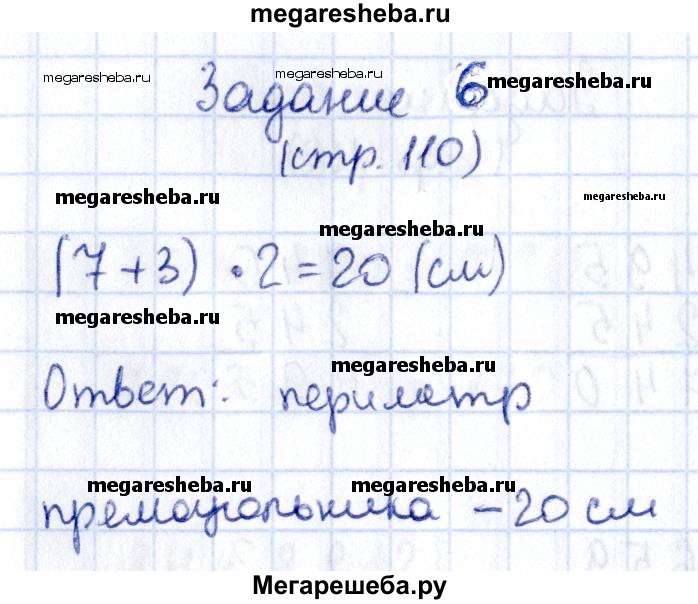 megaresheba.ru
megaresheba.ru megaresheba.ru megaresheba.ru
Задание 6
(стр. 110)
megaresheba.ru megaresheba.ru
megaresheba.ru
(7+3) · 2 = 20 (см)
megaresheba.ru
megaresheba.ru
Ответ: периметр
megaresheba.ru megaresheba.ru
премоугольника – 20 см
Мегарешеба.ру